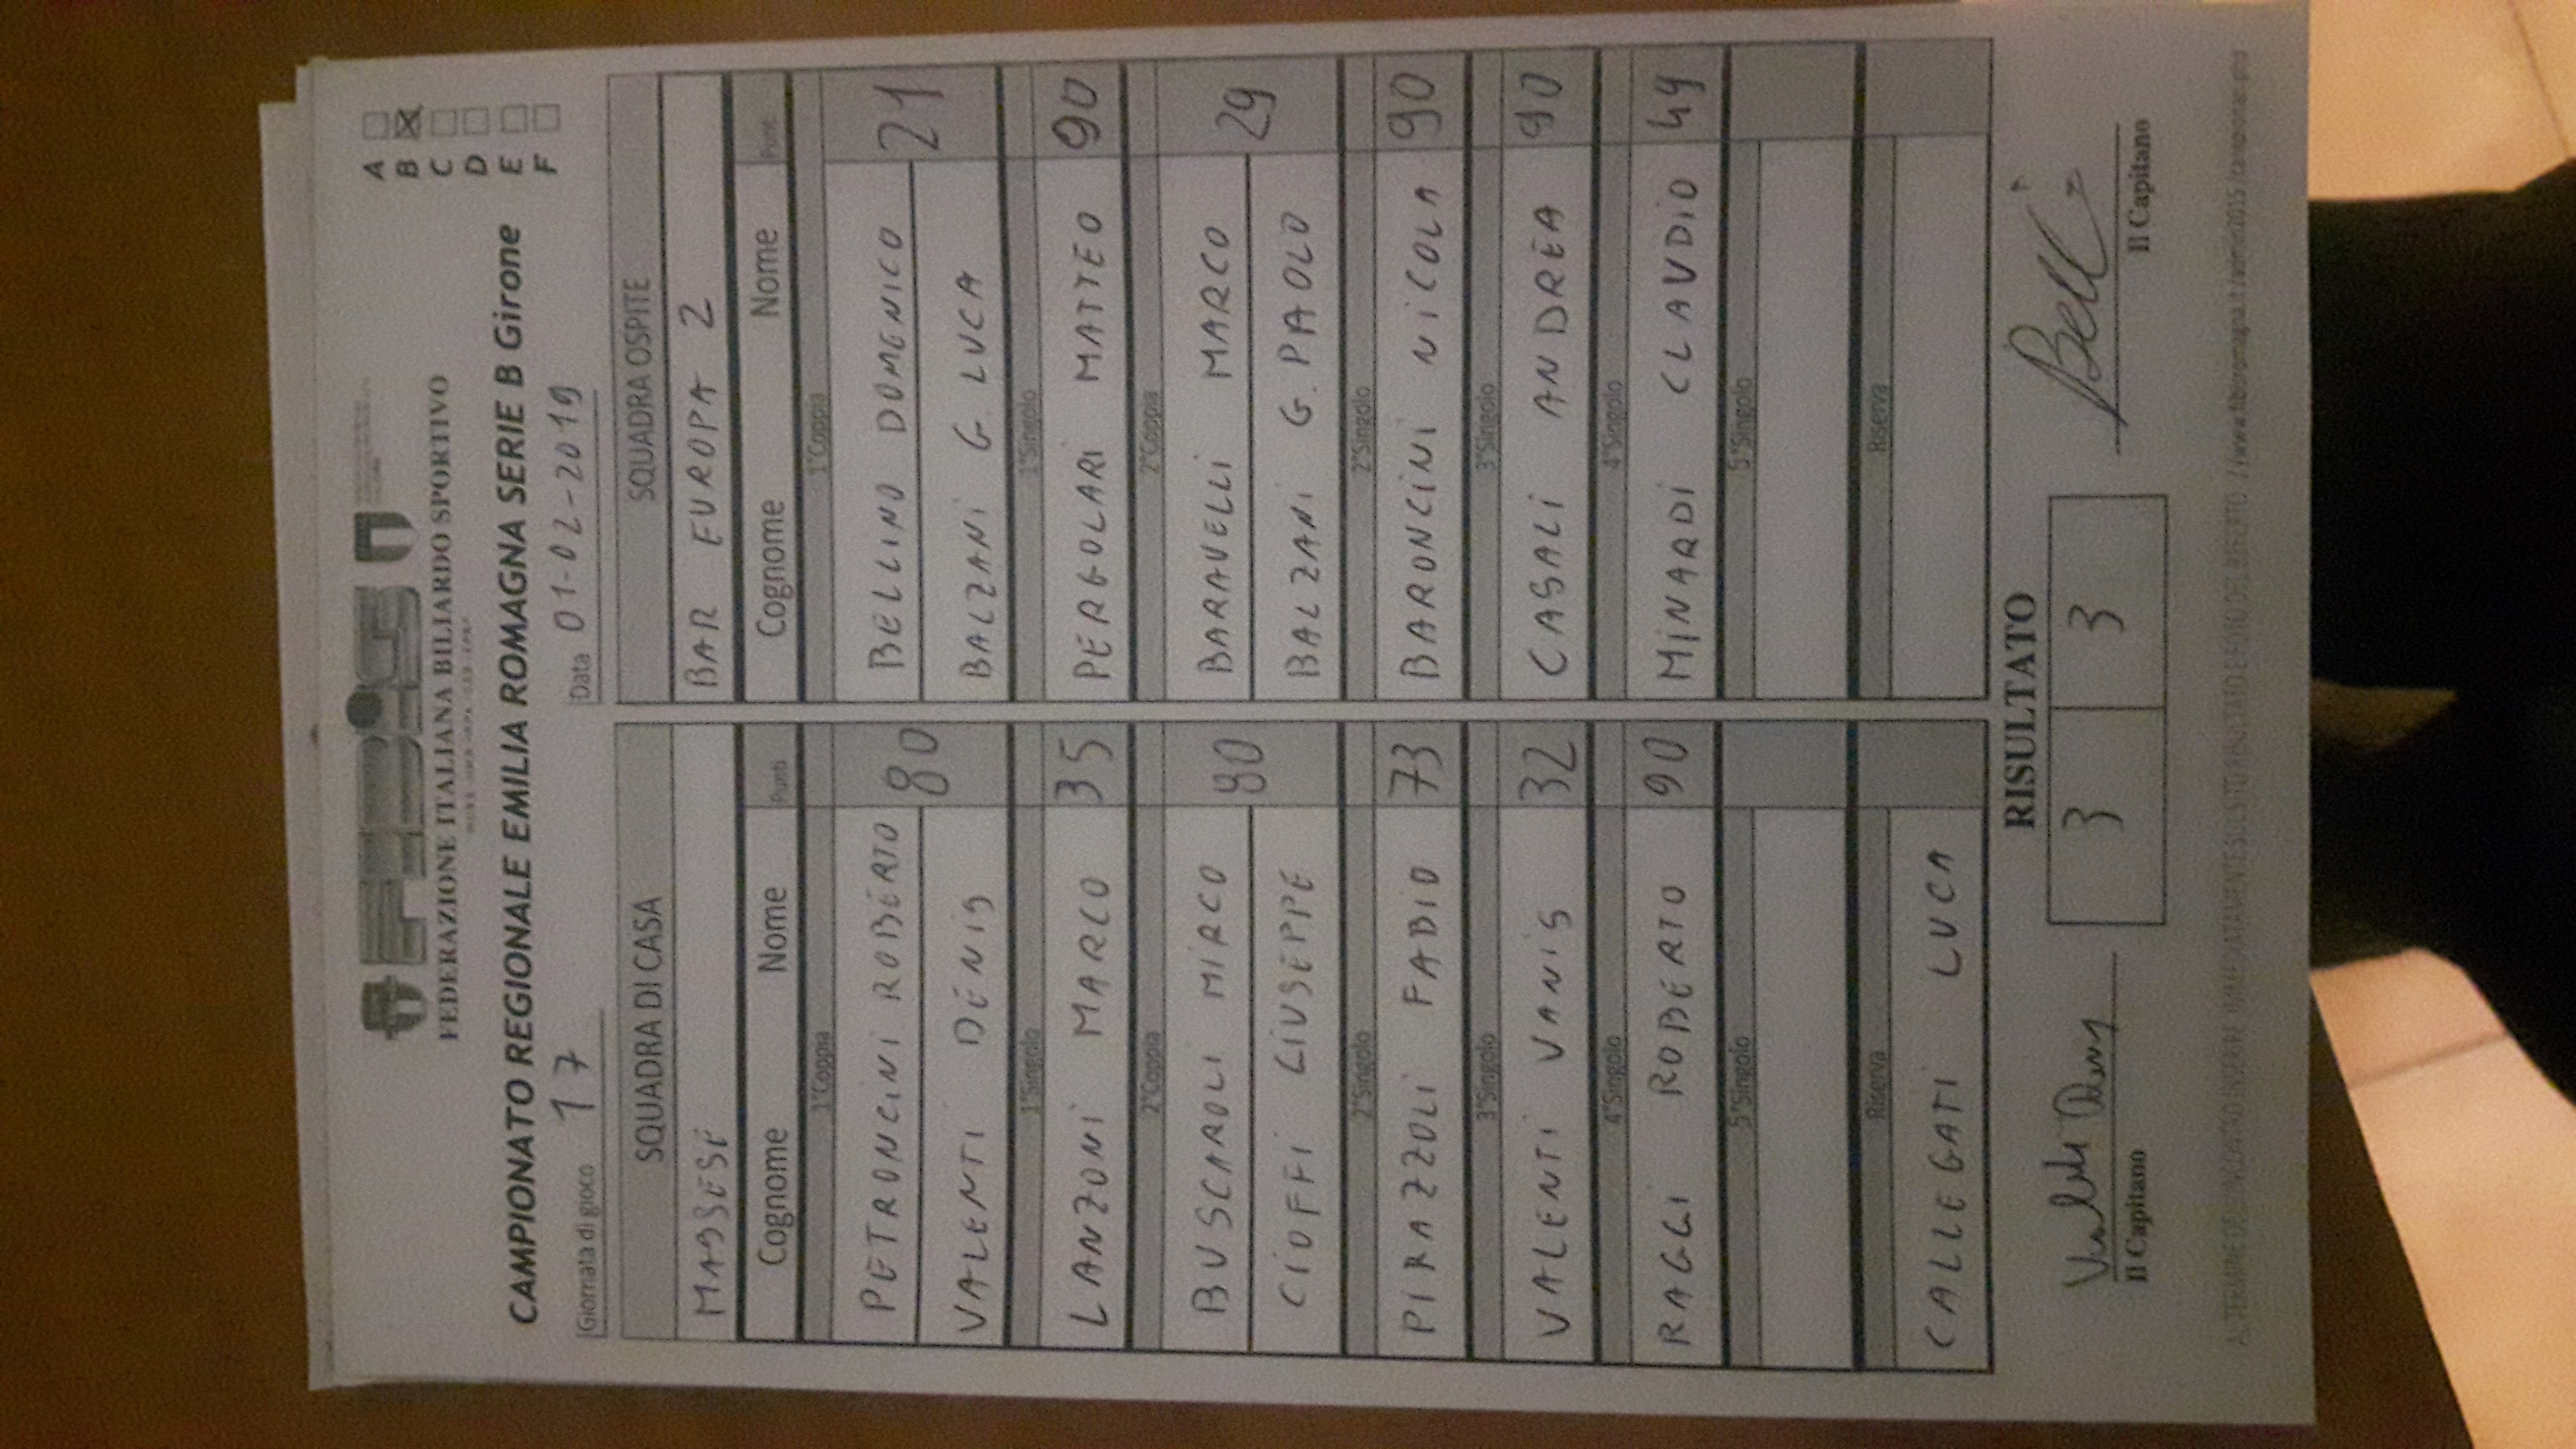 FIBiS
FEDERAZIONE ITALIANA BILIARDO SPORTIVO
CAMPIONATO REGIONALE EMILIA ROMAGNA SERIE B Girone
A
B
C
D
E
F
Giornata di gioco 17 Data 01-02-2019
SQUADRA DI CASA SQUADRA OSPITE
MASSESE BAR EUROPA 2
Cognome Nome Punti Cognome Nome Punti
1°Coppia 1°Coppia
PETRONCINI ROBERTO 80 BELLINO DOMENICO 21
VALENTI DENIS BALZANI G. LUCA
1°Singolo 1°Singolo
LANZONI MARCO 35 PERGOLARI MATTEO 90
2°Coppia 2°Coppia
BUSCAROLI MIRCO 80 BARAVELLI MARCO 29
CIOFFI GIUSEPPE BALZANI G. PAOLO
2°Singolo 2°Singolo
PIRAZZOLI FABIO 73 BARONCINI NICOLA 90
3°Singolo 3°Singolo
VALENTI VANIS 32 CASALI ANDREA 90
4°Singolo 4°Singolo
RAGGI ROBERTO 90 MINARDI CLAUDIO 49
5°Singolo 5°Singolo
Riserva Riserva
CALLEGATI LUCA
RISULTATO
3 3
Il Capitano Il Capitano